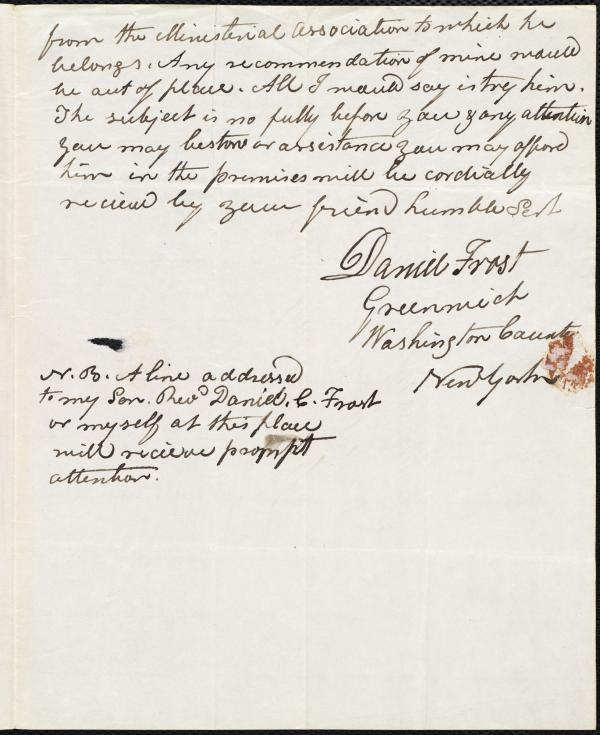 from the Ministerial Association to which he
belongs. Any recommendation of mine would
be out of place. All I would say is try him.
The subject is no fully before you & any attention
you may bestow or assistance you may afford
him in the premises will be cordially
recieved by your friend humble Sert
Daniel Frost
Greenwich
Washington County
New York
N. B. A line addressed
to my Son. Revd Daniel. C. Frost
or myself at this place
will recieve prompt
attention.